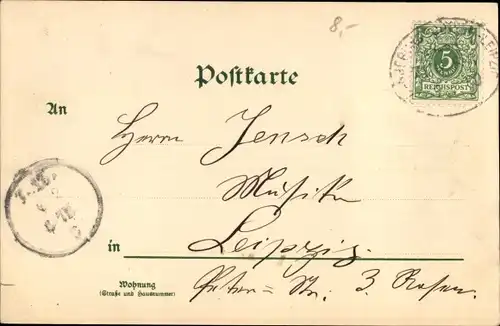 8,-
5
REICHSPOST
Postkarte
An
Herrn Jensch
Musiker
in Leipzig.
Wohnung
(Straße und Hausnummer)
Peter-Str. 3 Rosen